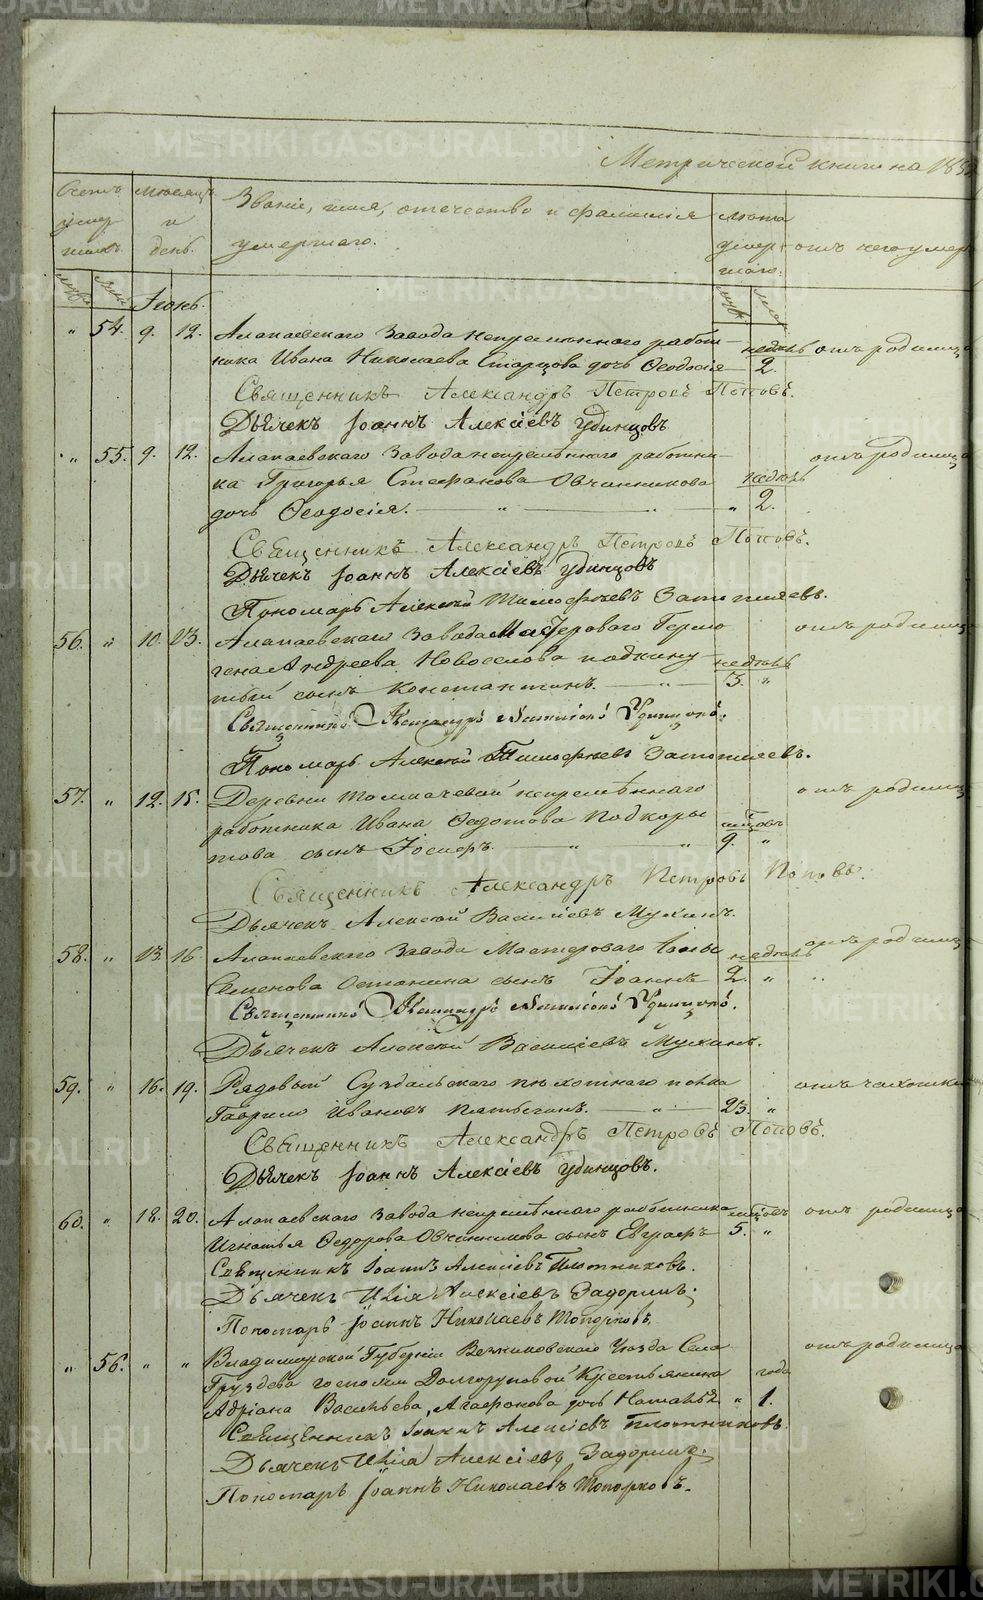 METRIKI.GASO-URAL.RU
Метрической книги на 185
Счетъ умер шихъ.
Месяцъ и день.
Званіе, имя, отечество и фамилія
умершаго.
Лета умер шаго.
отъ чего умер
муж. жен. Іюнь. муж. жен.
" 54. 9. 12. Алапаевскаго Завода непременнаго работ
ника Ивана Николаева Старцова дочь Ѳеодосія недель 2. отъ родимца
Священникъ Александръ Петровъ Поповъ.
Дьячекъ Іоаннъ Алексіевъ Удинцовъ
" 55. 9. 12. Алапаевскаго Завода непремѣннаго работни
ка Григорья Стефанова Овчинникова недель отъ родимца
дочь Ѳеодосія. " " " 2.
Священникъ Александръ Петровъ Поповъ.
Дьячекъ Іоаннъ Алексіевъ Удинцовъ
Пономарь Алексей Тимофѣевъ Затопляевъ.
56. " 10. 13. Алапаевскаго Завода Мастероваго Гермо
гена Андреева Новоселова подкину недель отъ родимца
тый сынъ Константинъ. " 3. "
Священникъ Александръ Удинцовъ.
Пономарь Алексей Тимофѣевъ Затопляевъ.
57. " 12. 15. Деревни Толмачевой непремѣннаго отъ родимца
работника Ивана Ѳедотова Подкоры
това сынъ Іосифъ. " " 9. "
Священникъ Александръ Петровъ Поповъ.
Дьячекъ Алексей Василіевъ Мухинъ.
58. " 13. 16. Алапаевскаго Завода Мастероваго недель отъ родимца
Семенова Останина сынъ Іоаннъ 2. "
Священникъ Александръ Удинцовъ.
Дьячекъ Алексей Василіевъ Мухинъ.
59. " 16. 19. Рядовый Суздальскаго пѣхотнаго полка отъ чахотки
Гаврило Ивановъ " 23. "
Священникъ Александръ Петровъ Поповъ.
Дьячекъ Іоаннъ Алексіевъ Удинцовъ.
60. " 18. 20. Алапаевскаго Завода непремѣннаго работника отъ родимца
Игнатья Ѳедорова Овчинникова сынъ Евграфъ 5. "
Священникъ Іоаннъ Алексіевъ Плотниковъ.
Дьячекъ Илія Алексіевъ Задоринъ.
Пономарь Іоаннъ Николаевъ Топорковъ.
" 56. " " Владимирской Губерніи Вязниковскаго Уезда Села отъ родимца
Груздева госпожи Долгоруковой Крестьянина года
Адріана Васильева Агафонова дочь Наталья " 1.
Священникъ Іоаннъ Алексіевъ Плотниковъ.
Дьячекъ Илія Алексіевъ Задоринъ.
Пономарь Іоаннъ Николаевъ Топорковъ.